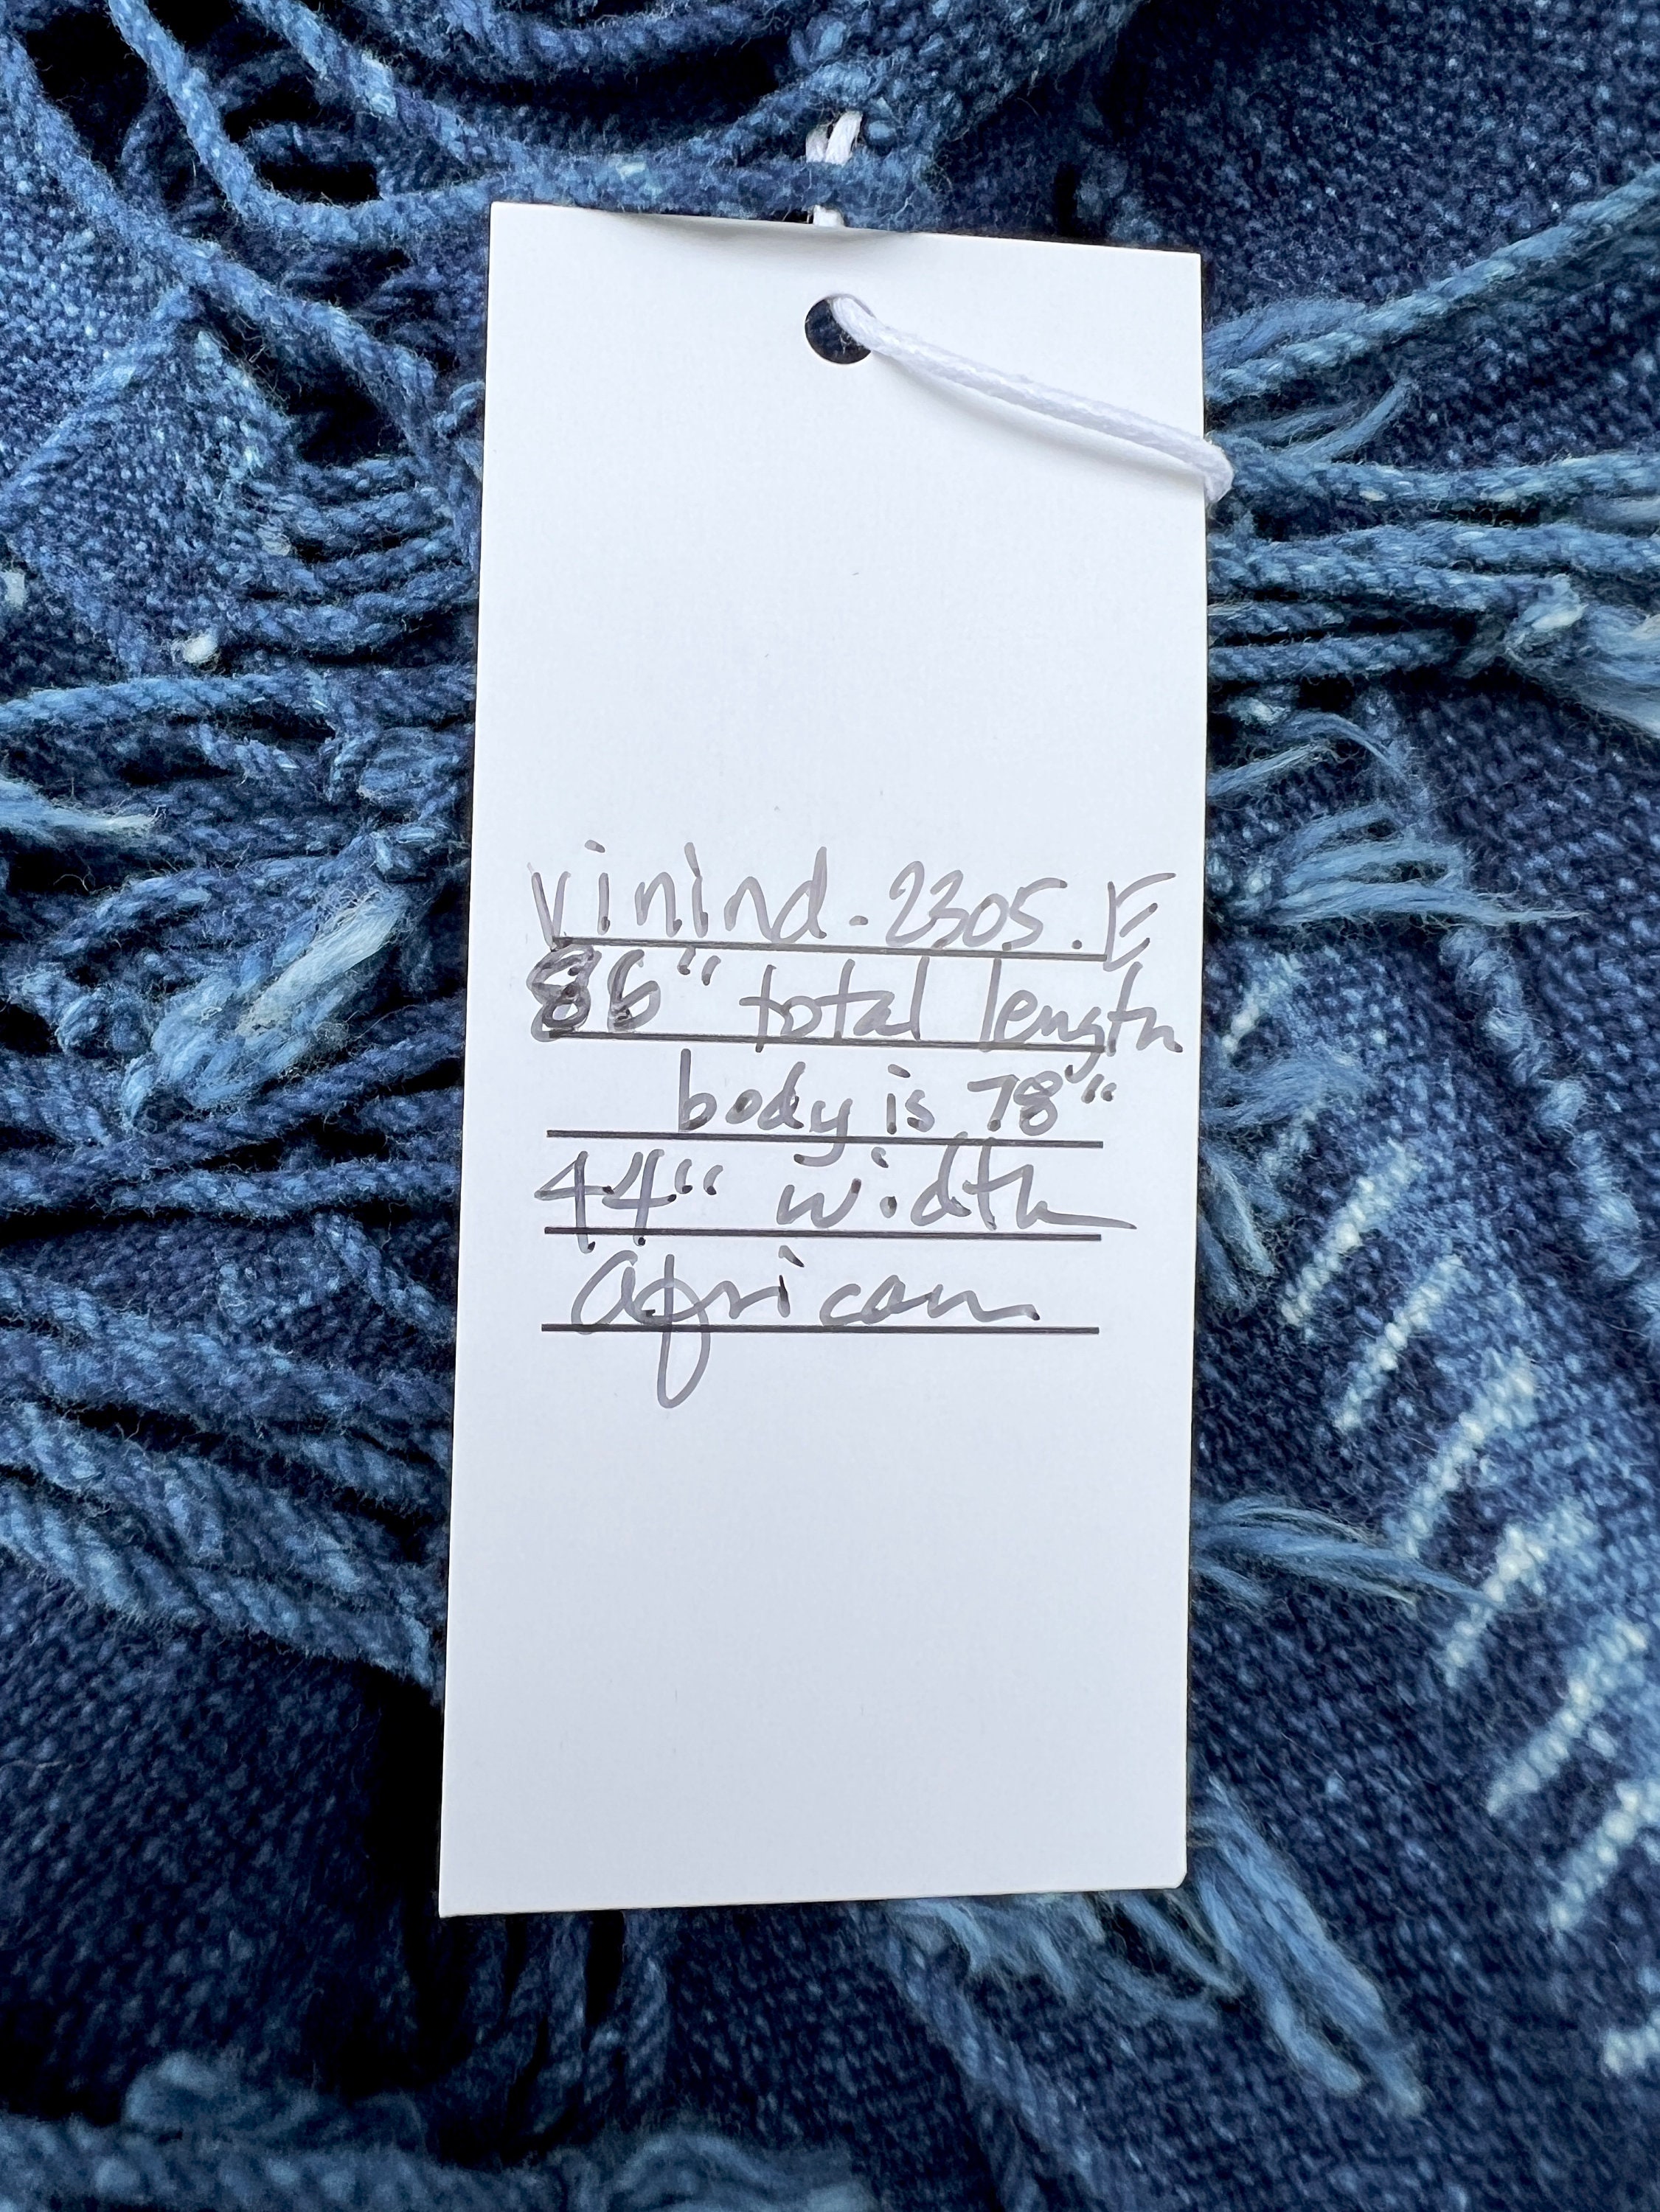 vinind-2305.E
86" total length
body is 78"
44" width
african